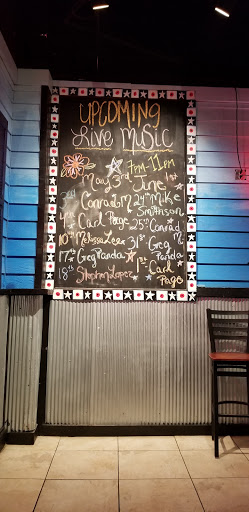 UPCOMING
Live Music
7PM-11PM
May 3rd - June 1st
Conrad M. 24th Mike Smithison
4th Carl Page 25th Conrad M.
10th Melissa Lee 31st Greg Panda
17th Greg Panda 1st Carl Page
18th Stephen Lopez